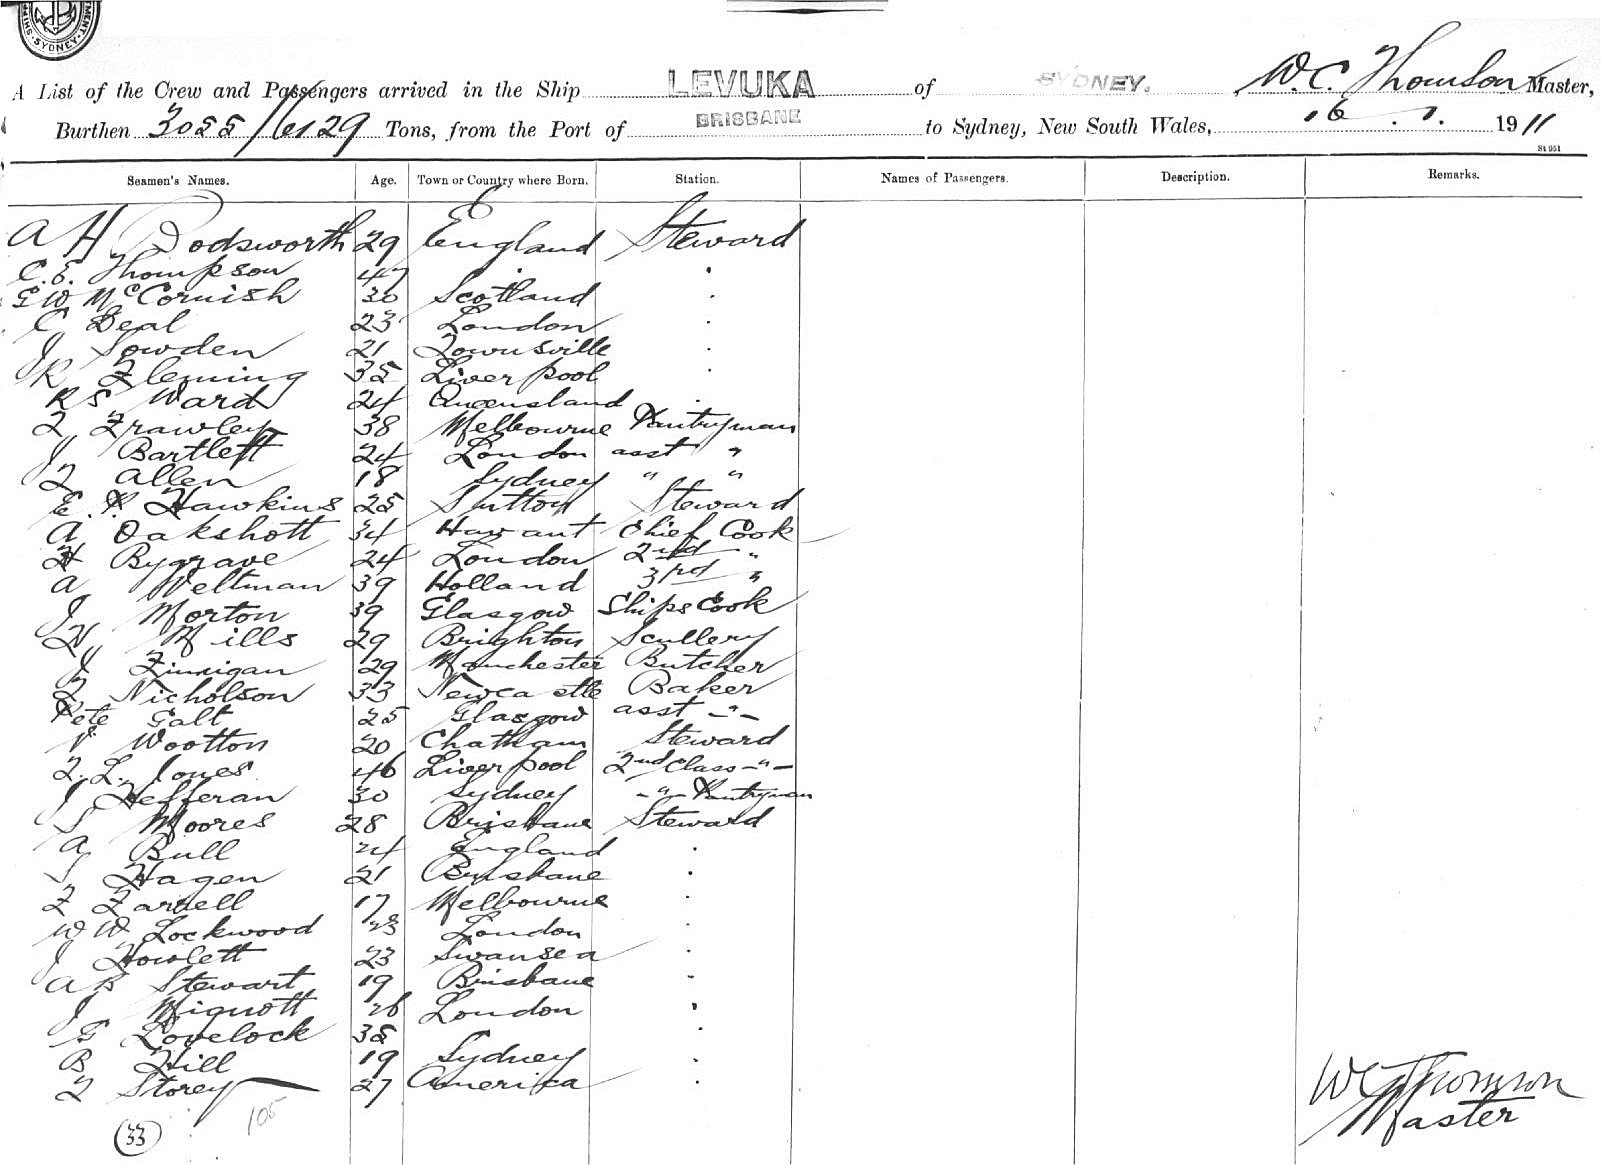 SYDNEY
A List of the Crew and Passengers arrived in the Ship LEVUKA of SYDNEY. W. C. Thomson Master,
Burthen 3055/6129 Tons, from the Port of BRISBANE to Sydney, New South Wales, 16 . 1. 1911
St 951
Seamen's Names. Age. Town or Country where Born. Station. Names of Passengers. Description. Remarks.
A H Dodsworth 29 England Steward
C. E. Thompson 47 "
G W McCornish 30 Scotland "
C Beal 23 London "
J Sowden 21 Townsville "
R Fleming 35 Liverpool "
R S Ward 24 Queensland "
F Frawley 38 Melbourne Pantryman
J Bartlett 24 London asst "
F Allen 18 Sydney " "
E. P Hawkins 25 Sutton Steward
A Oakshott 34 Havant Chief Cook
H Bygrave 24 London 2nd "
A Weltman 39 Holland 3rd "
J Morton 39 Glasgow Ships Cook
H Mills 29 Brighton Scullery
J Finnigan 29 Manchester Butcher
F Nicholson 33 Newcastle Baker
Pete Galt 25 Glasgow asst -"-
V Wootton 20 Chatham Steward
F. L. Jones 46 Liverpool 2nd Class -"-
J Hefferan 30 Sydney -"- Pantryman
S Moores 28 Brisbane Steward
A Bull 24 England "
S Hagen 21 Brisbane "
F Farrell 17 Melbourne "
W W Lockwood 23 London "
J Howlett 23 Swansea "
A B Stewart 19 Brisbane "
J Mignott 26 London "
G Lovelock 35 "
B Hill 19 Sydney "
F Storey 27 America "
W C Thomson
Master
105
33